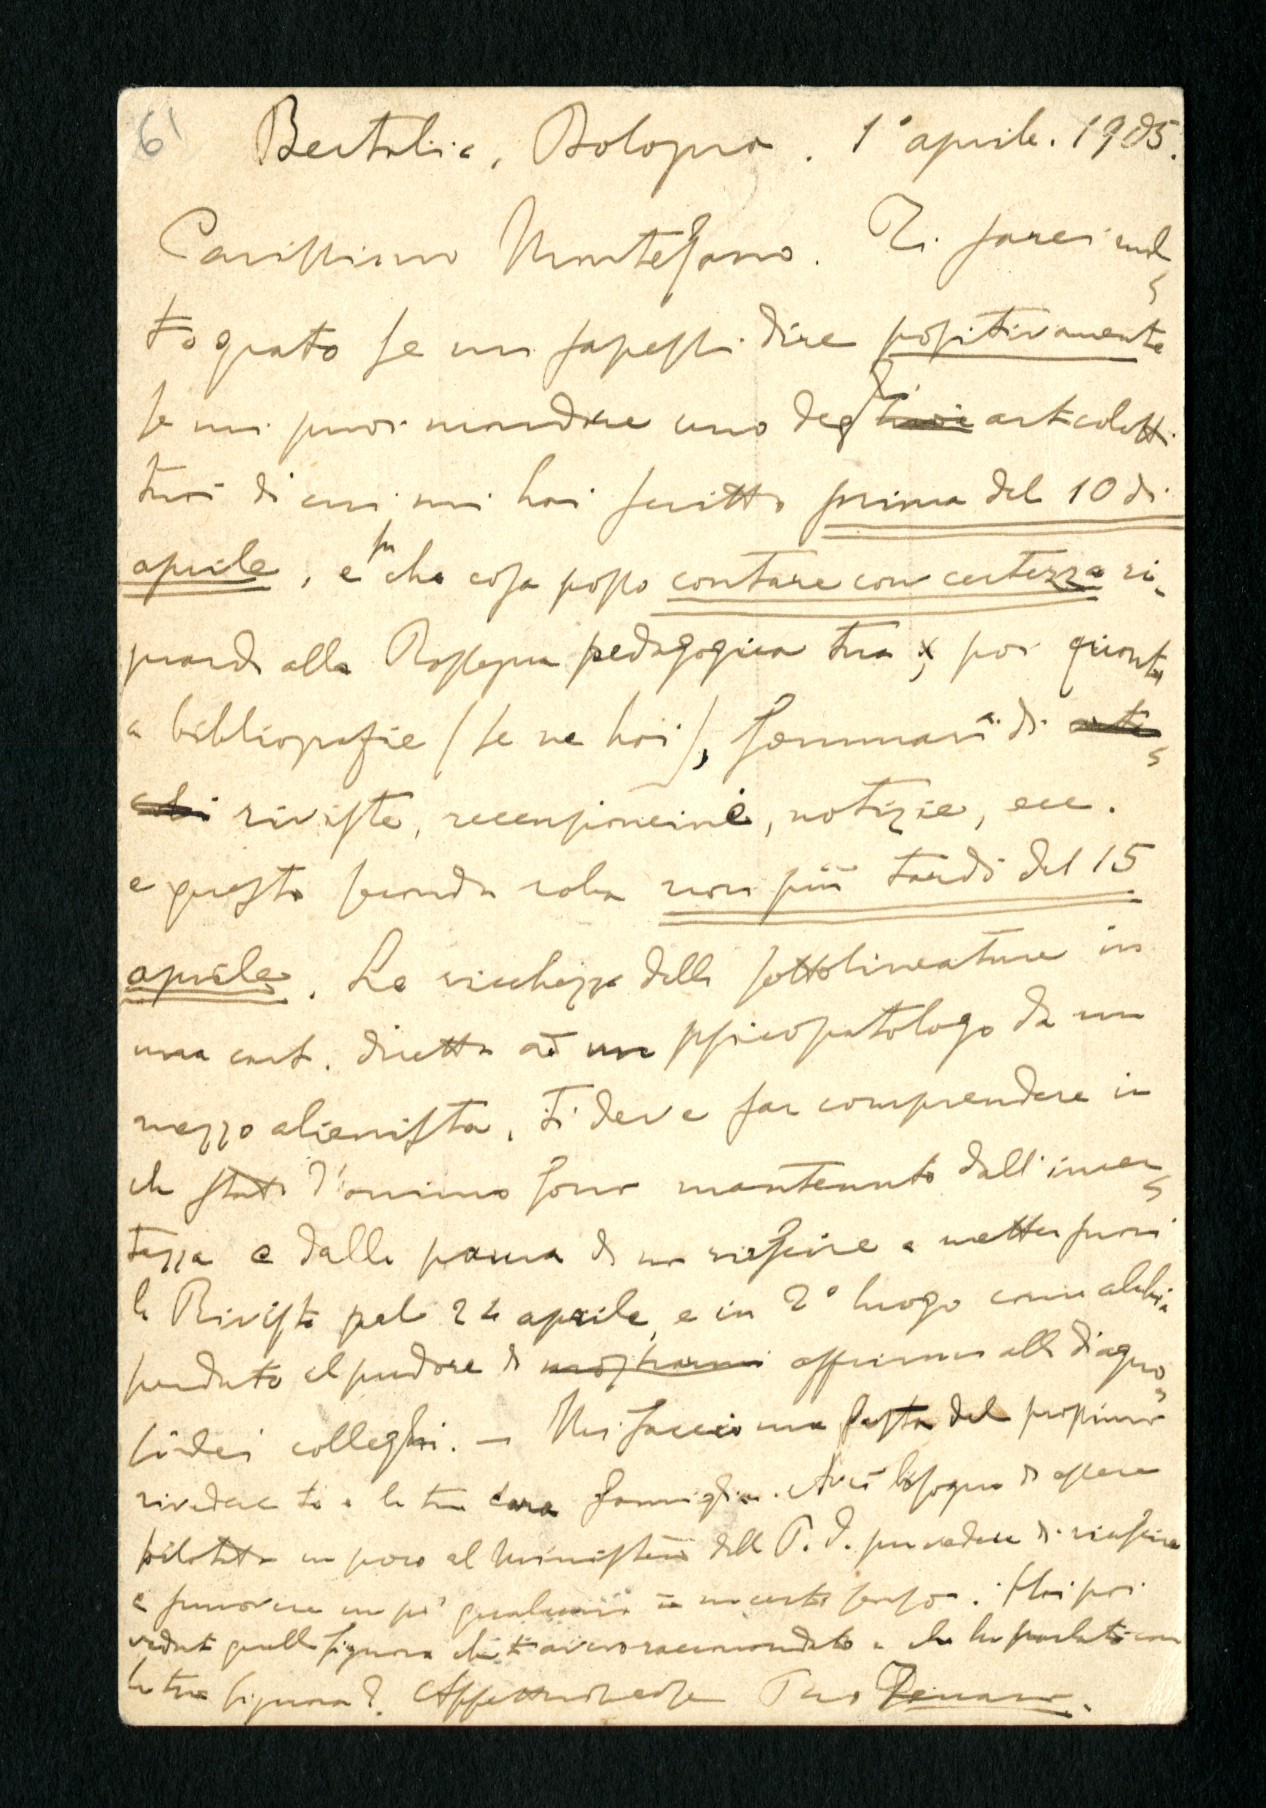 61
Bertalia, Bologna. 1° aprile. 1905.
Carissimo Montesano. Ti sarei mol=
to grato se mi sapessi dire positivamente
se mi puoi mandare uno degli tuoi articoletti
tuoi di cui mi hai scritto prima del 10 di
aprile, e su che cosa posso contare con certezza ri-
guardo alla Rassegna pedagogica tua; poi quanto
a bibliografie (se ne hai), sommari di arti=
coli riviste, recensioncine, notizie, ecc.
e questa seconda roba non più tardi del 15
aprile. La ricchezza delle sottolineature in
una cart. diretta ad un psicopatologo da un
mezzo alienista, ti deve far comprendere in
che stato d'animo sono mantenuto dall'incer=
tezza e dalla paura di non riescire a metter fuori
la Rivista pel 24 aprile, e in 2° luogo come abbia
perduto il pudore di mostrarmi affirmar alla diagno=
si dei colleghi. — Mi faccio una festa del prossimo
rivedere te e la tua cara famiglia. Avrò bisogno di essere
pilotato un poco al Ministero della P. I. per vedere di riuscire
a smuovere un po' qualcuno in un certo senso. Hai poi
veduto quella signora che t'avevo raccomandato e che ha parlato con
la tua signora? Affettuosamente Tuo